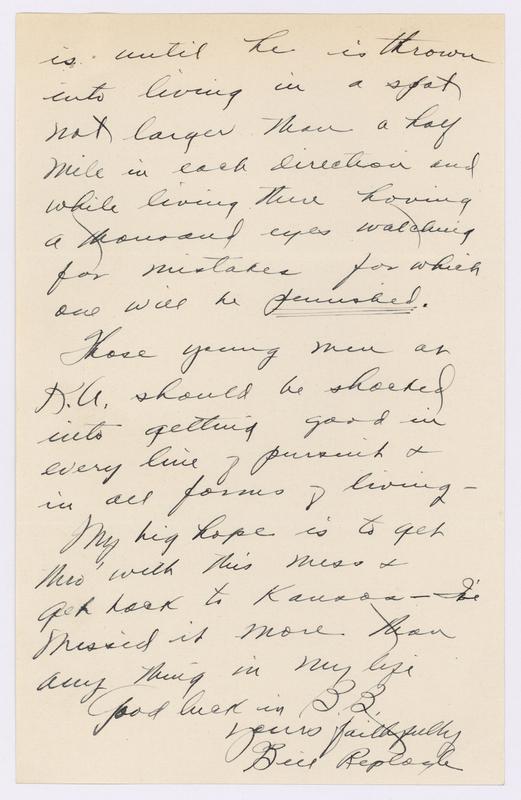 is until he is thrown
into living in a spot
not larger than a half
mile in each direction and
while living there having
a thousand eyes watching
for mistakes for which
one will be punished.
Those young men at
K.U. should be shocked
into getting good in
every line of pursuit &
in all forms of living -
My big hope is to get
thro' with this mess &
get back to Kansas - I've
missed it more than
any thing in my life
Good luck in B.B.
Yours faithfully
Bill Replogle